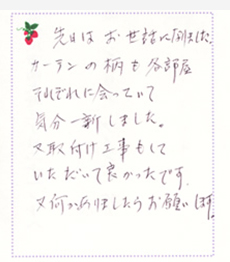 先日はお世話になりました。
カーテンの柄も各部屋
それぞれに会っていて
気分一新しました。
又取付け工事もして
いただいて良かったです。
又何かありましたらお願いします。